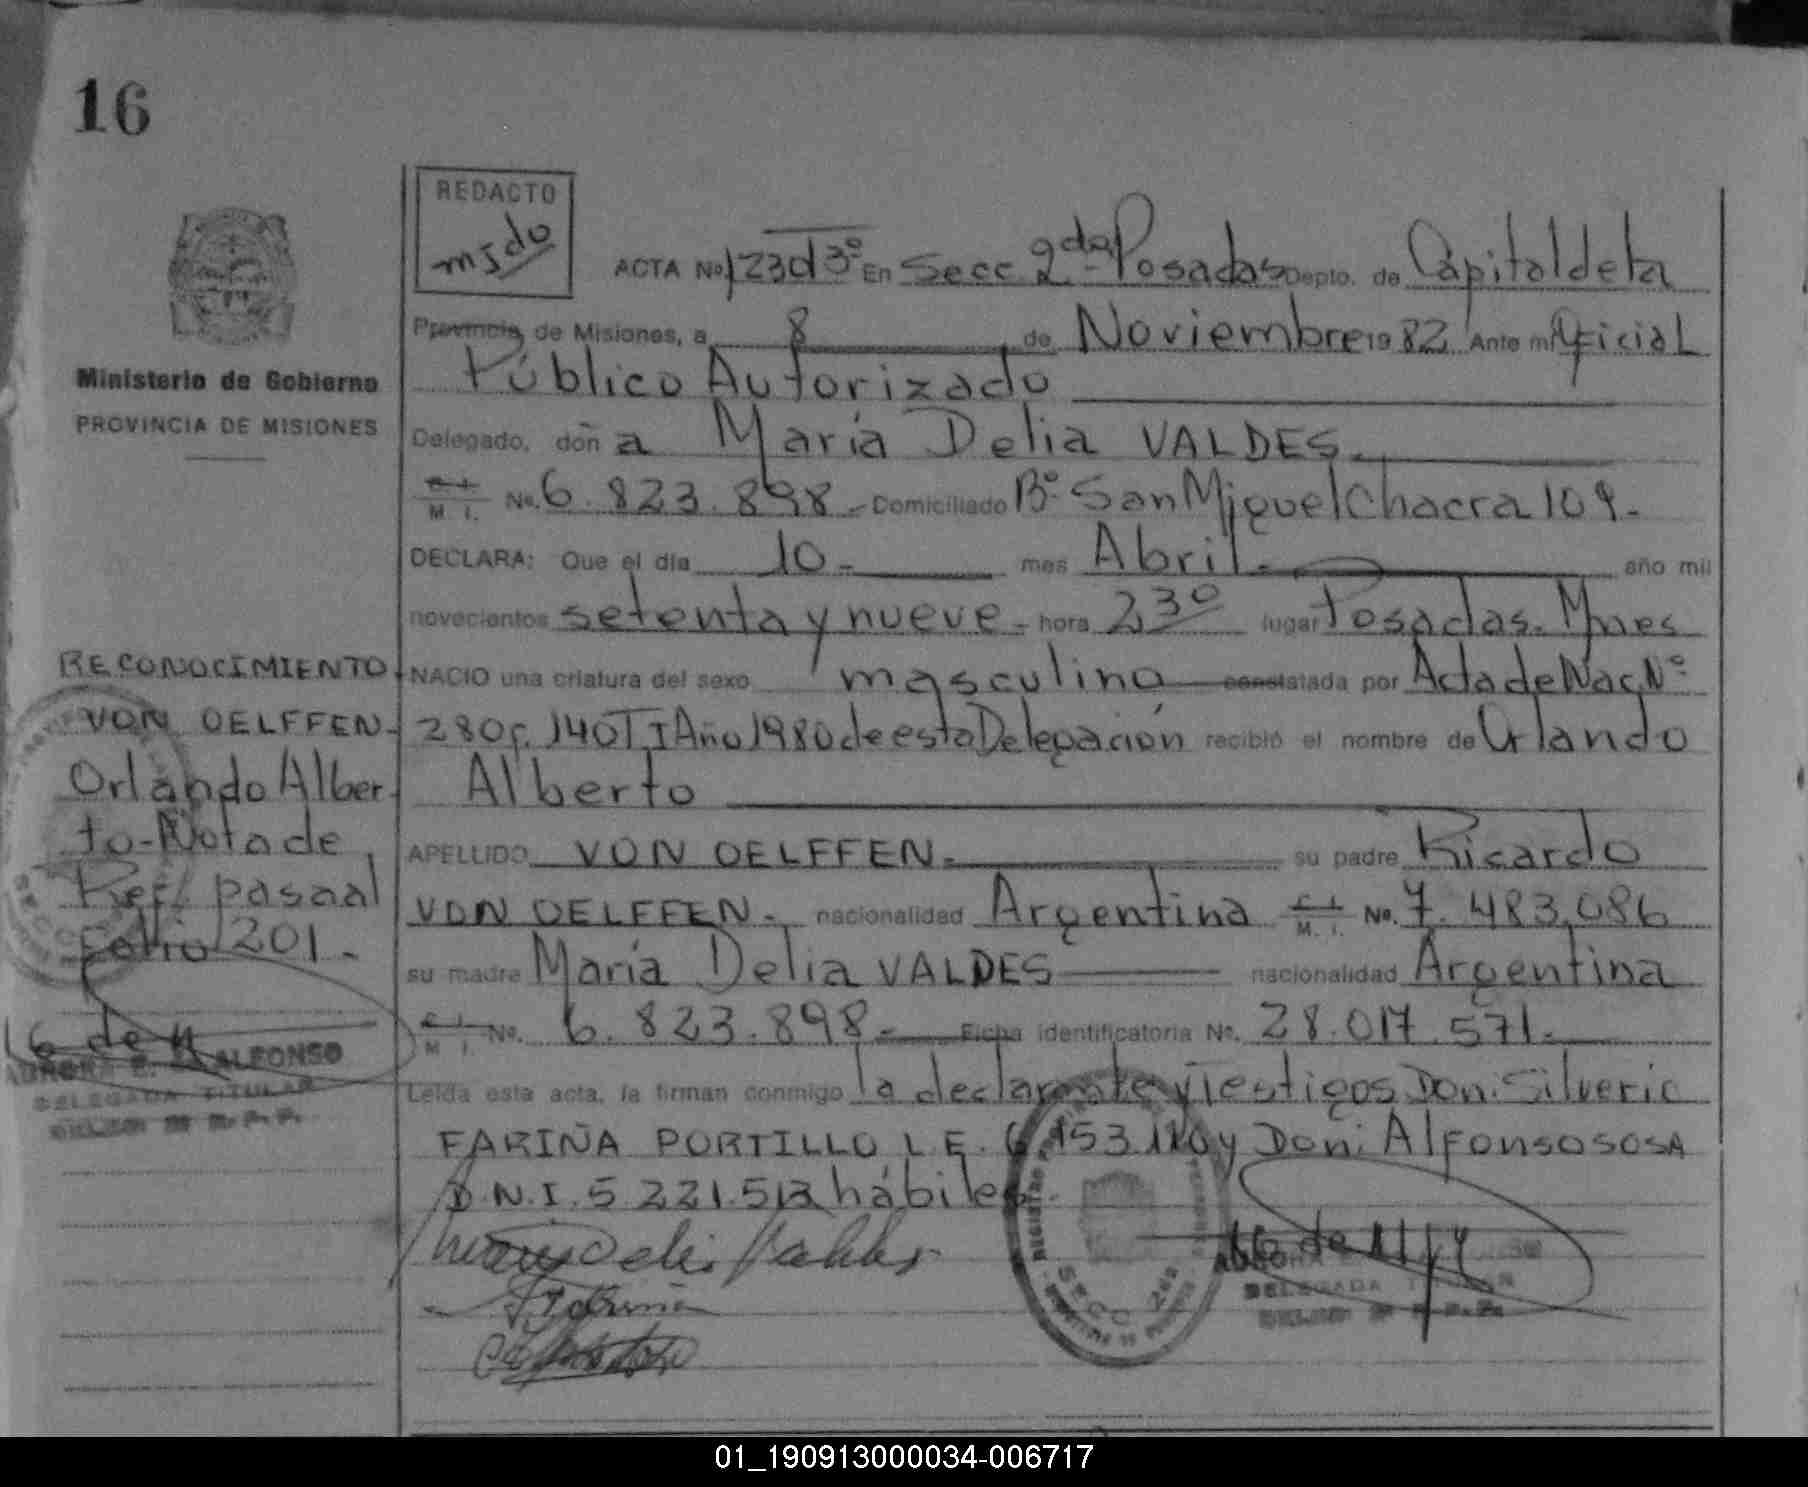 16
REDACTO
ACTA No 123 En Secc 2da Posadas Depto. de Capital de la
Provincia de Misiones, a 8 de Noviembre 19 82 Ante mi Oficial
Público Autorizado
Ministerio de Gobierno
PROVINCIA DE MISIONES
Delegado, don a María Delia VALDES.
C. I.
M. I. No. 6.823.898- Domiciliado Bº San Miguel Chacra 109-
DECLARA: Que el día 10- mes Abril- año mil
novecientos setenta y nueve- hora 23º lugar Posadas. Mnes
NACIO una criatura del sexo masculino constatada por Acta de Nac. Nº
280 F. 140 T I Año 1980 de esta Delegación recibió el nombre de Orlando
Alberto
APELLIDO VON OELFFEN- su padre Ricardo
VON OELFFEN- nacionalidad Argentina C. I. M. I. No. 7.483.086
su madre María Delia VALDES nacionalidad Argentina
C. I. M. I. No. 6.823.898- Ficha identificatoria No. 28.017.571-
Leída esta acta, la firman conmigo la declarante y Testigos Don: Silverio
FARIÑA PORTILLO L.E. 6 153 110 y Don: Alfonso SOSA
D.N.I. 5 221.512 hábiles.
RECONOCIMIENTO
VON OELFFEN-
Orlando Alber-
to-Nota de
Ref. pasa al
Folio 201-
ALFONSO
DELEGADA TITULAR
SECC 2da
DELEGADA
01_190913000034-006717